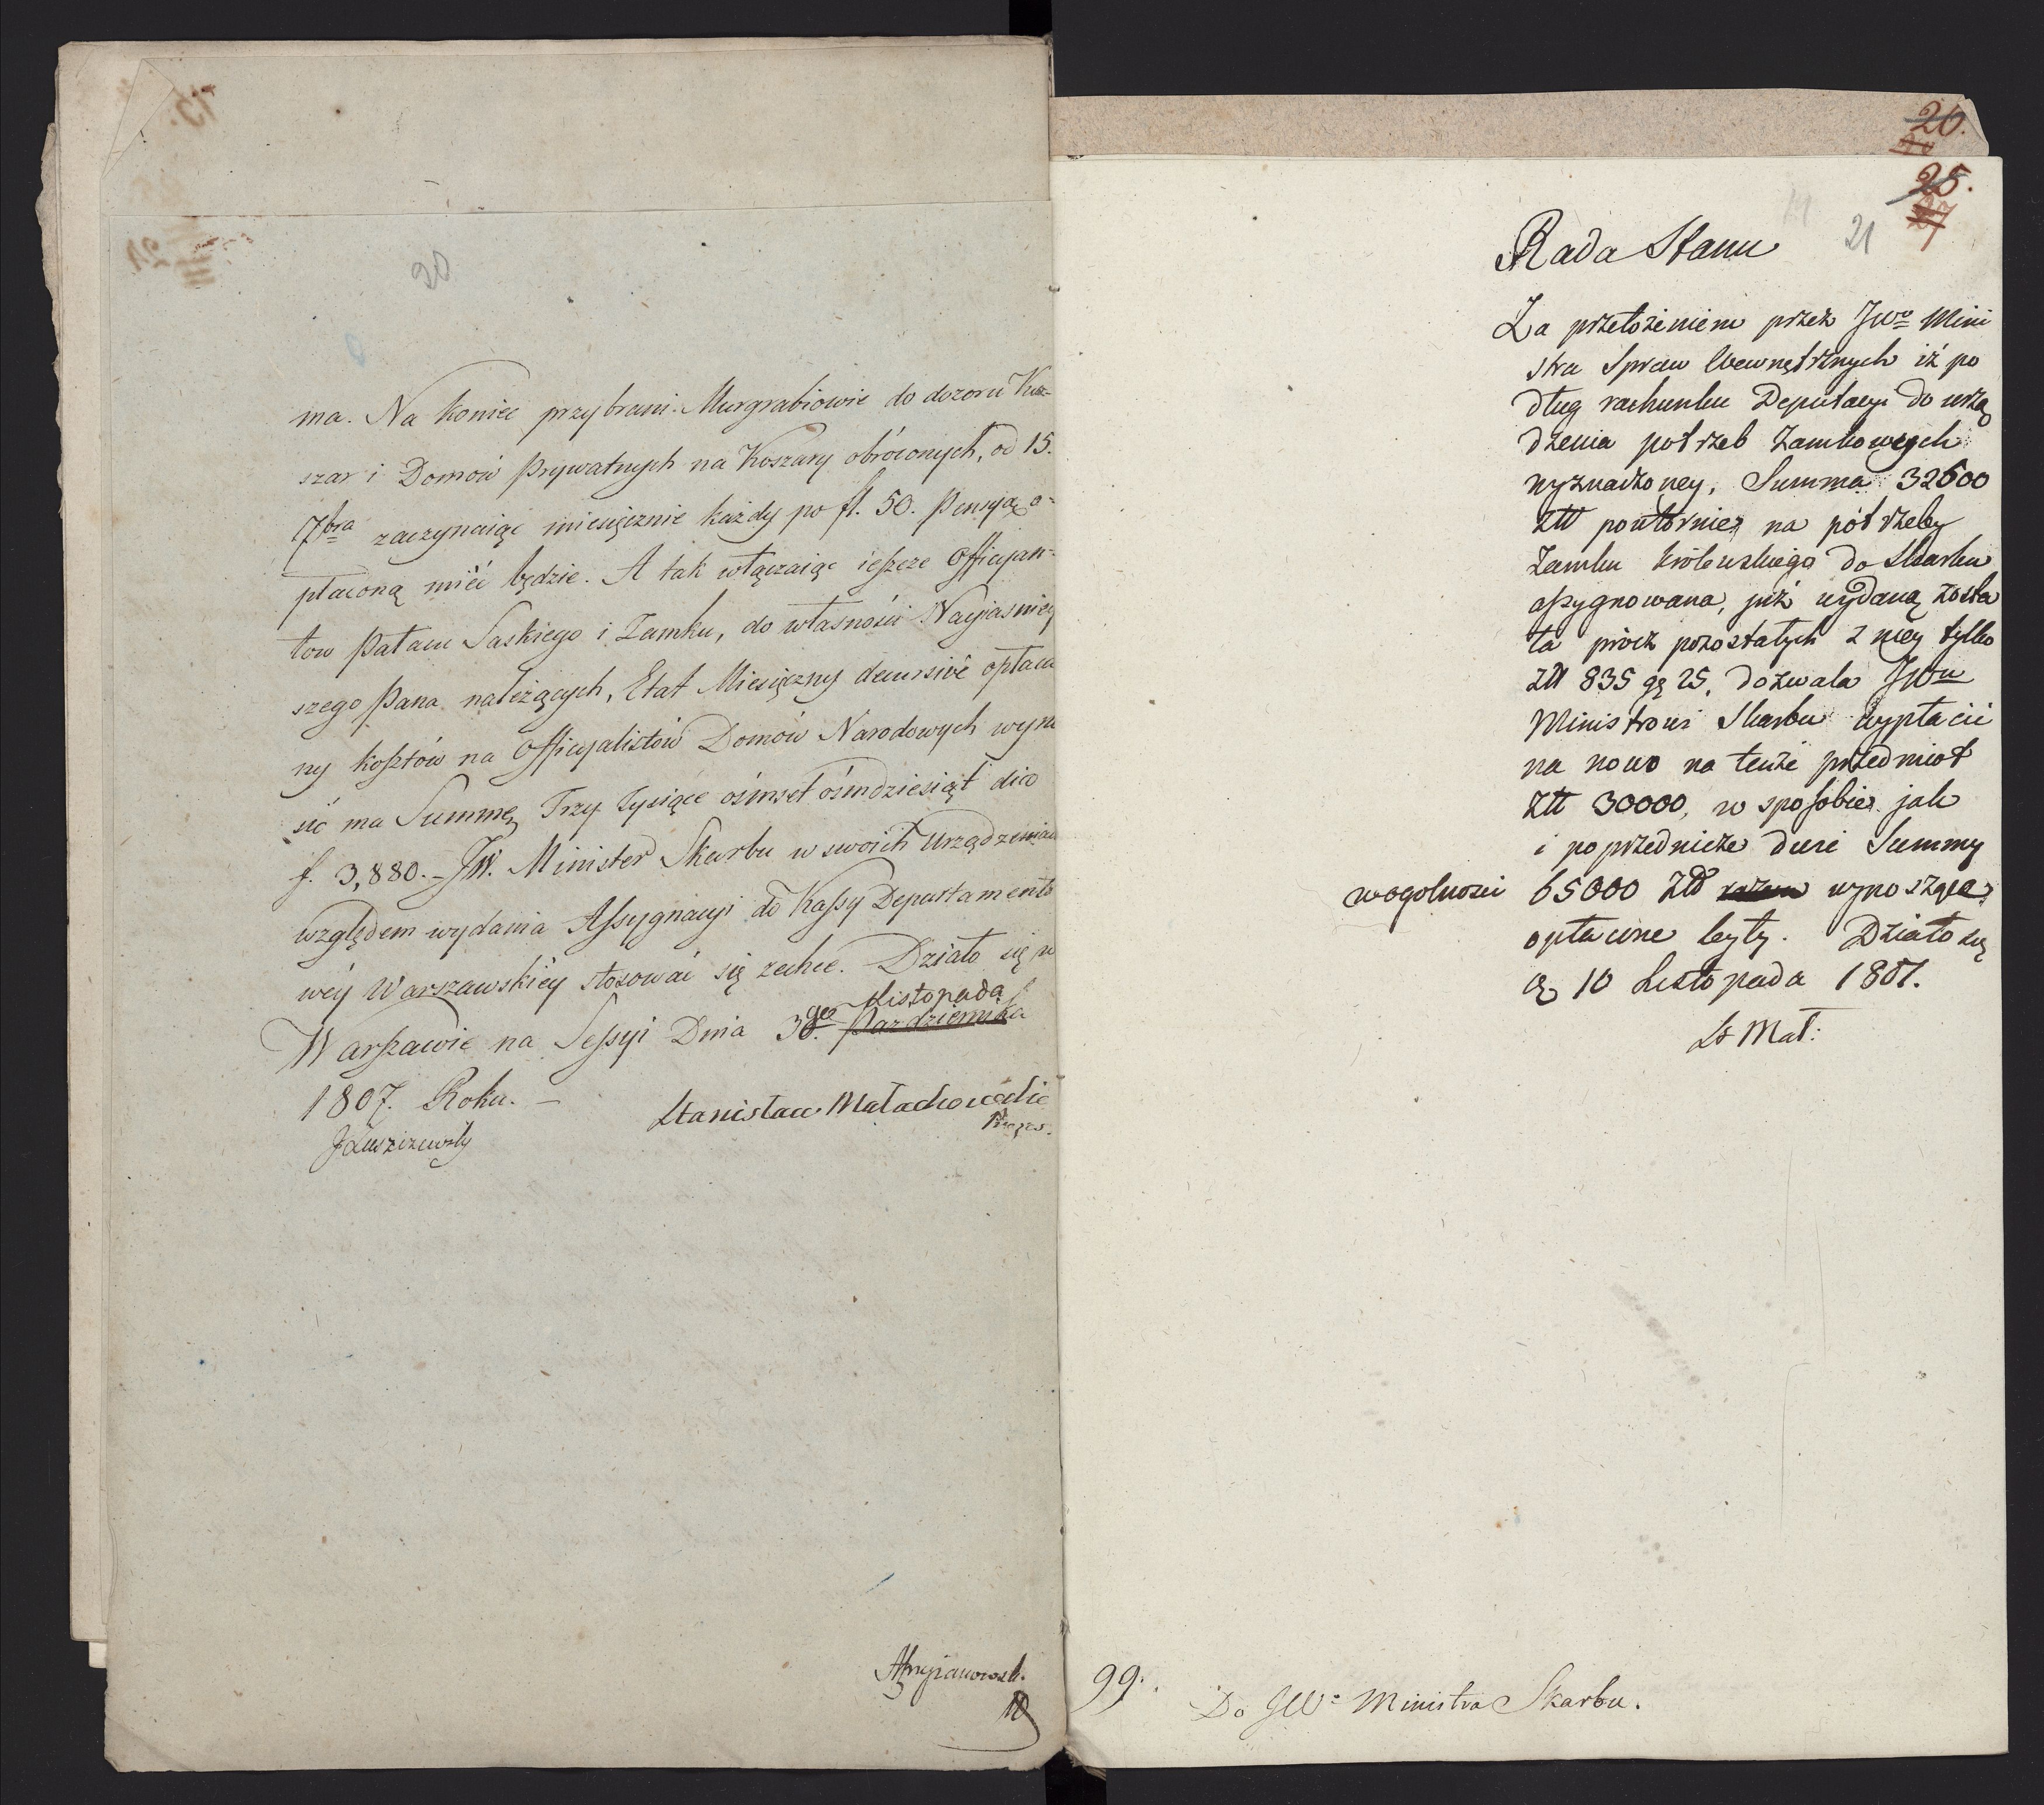 20
ma. Na koniec przybrani Murgrabiowie do dozoru Ko-
szar i Domów prywatnych na Koszary obróconych, od 15.
7bra zaczynaiąc miesięcznie każdy po fl. 50. Pensyą o-
płaconą mieć będzie. A tak włączaiąc ieszcze Officyan-
tow Pałacu Saskiego i Zamku, do własności Nayiasniey
szego Pana należących, Etat Miesięczny decursivè opłaca
ny kosztów na Officyalistów Domów Narodowych wyno
sić ma Summę Trzy Tysiące ośmset ośmdziesiąt dico
f. 3,880.- JW. Minister Skarbu w swoich Urządzeniach
względem wydania Assygnacyi do Kassy Departamento
wéy Warszawskiéy stosować się zechce. Działo się w
Listopada
Warszawie na Sessyi Dnia 3go Pazdziernika
1807. Roku. -
Stanisław Małachowski
Prezes.
J Łuszczewski
99.
20.
25.
21
Rada Stanu
Za przełożeniem przez JWo Mini
stra Spraw Wewnętrznych iż po
dług rachunku Deputacyi do urzą
dzenia potrzeb Zamkowych
wyznaczoney, Summa 32500
Złł powtornie na potrzeby
Zamku Królewskiego do Skarbu
assygnowana, już wydaną zosta
ła prócz pozostałych z niey tylko
złł 835 gę 25, dozwala JWu
Ministrowi Skarbu wypłacić
na nowo na tenże przedmiot
Złł 30000, w sposobie jak
i poprzednicze dwie Summy
wogolnosci 65000 Złł wynoszące
opłacone były. Działo się
d 10 Listopada 1807.
St Mał:
Do JWo Ministra Skarbu.